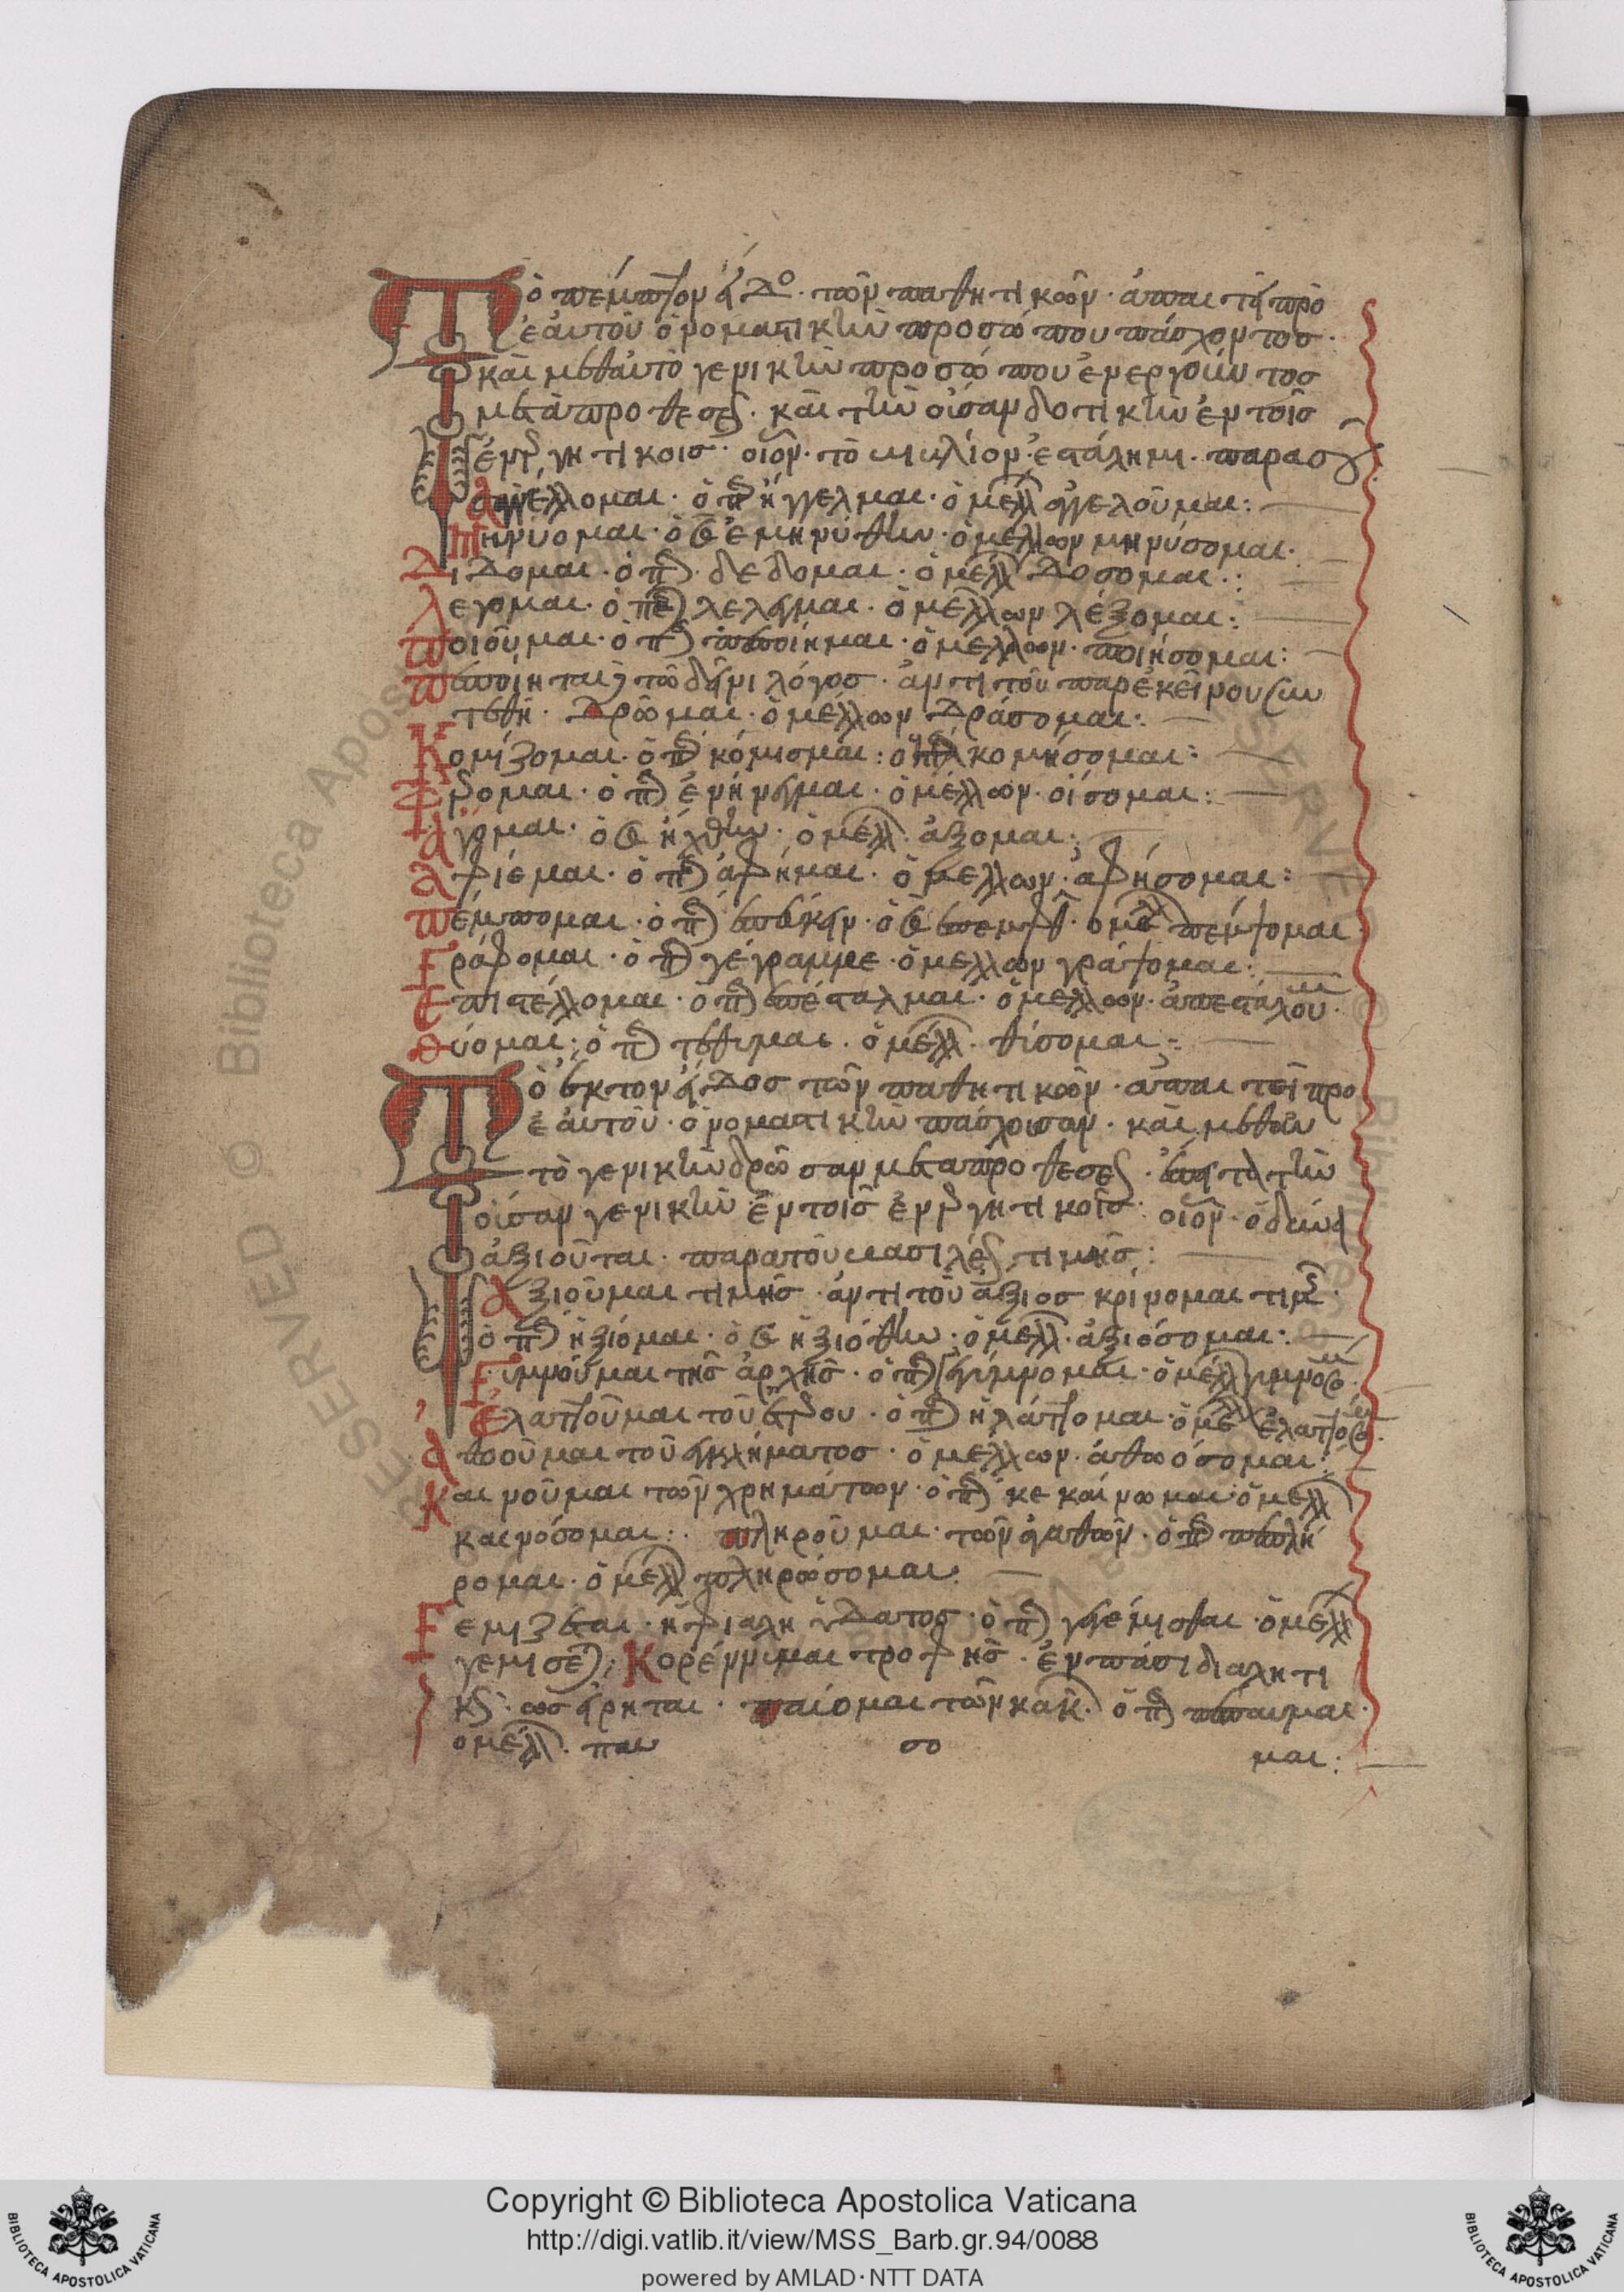 Τὸ πέμπτον εἶδο. τῶν παθητικῶν. ἀπαιτεῖ πρὸ
ἑαυτοῦ ὀνοματικὴν προσώπου πάσχοντοσ.
καὶ μεθαὐτὸ γενικὴν προσώπου ἐνεργοῦντοσ
μετὰ προθέσε. καὶ τὴν οὖσαν δοτικὴν ἐν τοῖσ
ἐνεργητικοισ. οἷον. τὸ βιβλίον ἐστάλη μι. παρασ
ἀγγέλλομαι. ὁ π ἤγγελμαι. ὁ μελλ ἀγγελοῦμαι:
μηνύομαι. ὁ ἐμηνύθην. ὁ μέλλων μηνύσομαι.
Δίδομαι. ὁ π. δέδομαι. ὁ μέλλ δοσομαι.:
λεγομαι. ὁ π λέλεγμαι. ὁ μέλλων λέξομαι:
ποιοῦμαι. ὁ π πεποίημαι. ὁ μέλλων. ποιήσομαι:
πεποίηται τῶ δεῖνι λόγοσ. ἀντι τοῦ παρ ἐκείνου συν
τεθη. Δρῶμαι. ὁ μέλλων Δράσομαι.
Κομίζομαι. ὁ π κόμισμαι: κομήσομαι:
Φέρομαι. ὁ π ἐνήνεγμαι. ὁ μέλλων. οἴσομαι:
ἄγομαι. ὁ ἤχθην. ὁ μέλλ. ἄξομαι:
ἀφίεμαι. ὁ π ἀφῆμαι. ὁ μελλων. ἀφήσομαι:
πέμπομαι. ὁ π πέμψομαι
Γράφομαι. ὁ π γέγραμμε. ὁ μελλων γράψομαι:
Ἐπιστέλλομαι. ὁ π ἐπέσταλμαι. ὁ μελλων. ἀπεσταλοῦμ.
θύομαι: ὁ π τέθιμαι. ὁ μέλλ. θίσομαι:
Τὸ ἕκτον εἶδοσ τῶν παθητικῶν. ἀπαιτεῖ προ
ἑαυτοῦ. ὀνοματικὴν πάσχουσαν. καὶ μεθαυ
τὸ γενικὴν δρῶσαν μετα προθέσε. τὴν
οὖσαν γενικὴν ἐν τοῖσ ἐνεργητικοῖσ: οἷον. ὁ δεῖνα
ἀξιοῦται. παρατοῦ βασιλέ τιμῆσ:
Ἀξιοῦμαι τιμῆσ. ἀντι τοῦ ἄξιοσ κρίνομαι τιμ.
ὁ π ἠξιόμαι. ὁ ἠξιόθην. ὁ μελλ. ἀξιόσομαι:
Γυμνοῦμαι τῆσ ἀρχῆσ. ὁ π γεγύμνομαι. ὁ μέλλ γυμνόσ
Ἐλαττοῦμαι τοῦ ἑτέρου. ὁ π ἠλάττομαι. ὁ μελλ ἐλαττόσ
ἀθοοῦμαι τοῦ ἐγκλήματοσ. ὁ μέλλων. ἀθωόσομαι:
Καινοῦμαι τῶν χρημάτων. ὁ π κεκαίνωμαι. ὁ μελλ
καινόσομαι:. πληροῦμαι. τῶν ἀγαθῶν. ὁ π πεπλή
ρομαι. ὁ μέλλ πληρώσομαι:
Γεμίζεται. ἡ φιαλη ὕδατοσ. ὁ π γεγέμισθαι. ὁ μελλ
γεμισε: Κορέννυμαι τροφῆσ. ἐν πάσι διαλητι
κ. ωσ εἴρηται. παύομαι τῶν κακ. ὁ π πέπαυμαι.
ὁ μέλλ. παυ σο μαι:
Copyright © Biblioteca Apostolica Vaticana
http://digi.vatlib.it/view/MSS_Barb.gr.94/0088
powered by AMLAD · NTT DATA
BIBLIOTECA APOSTOLICA VATICANA
BIBLIOTECA APOSTOLICA VATICANA